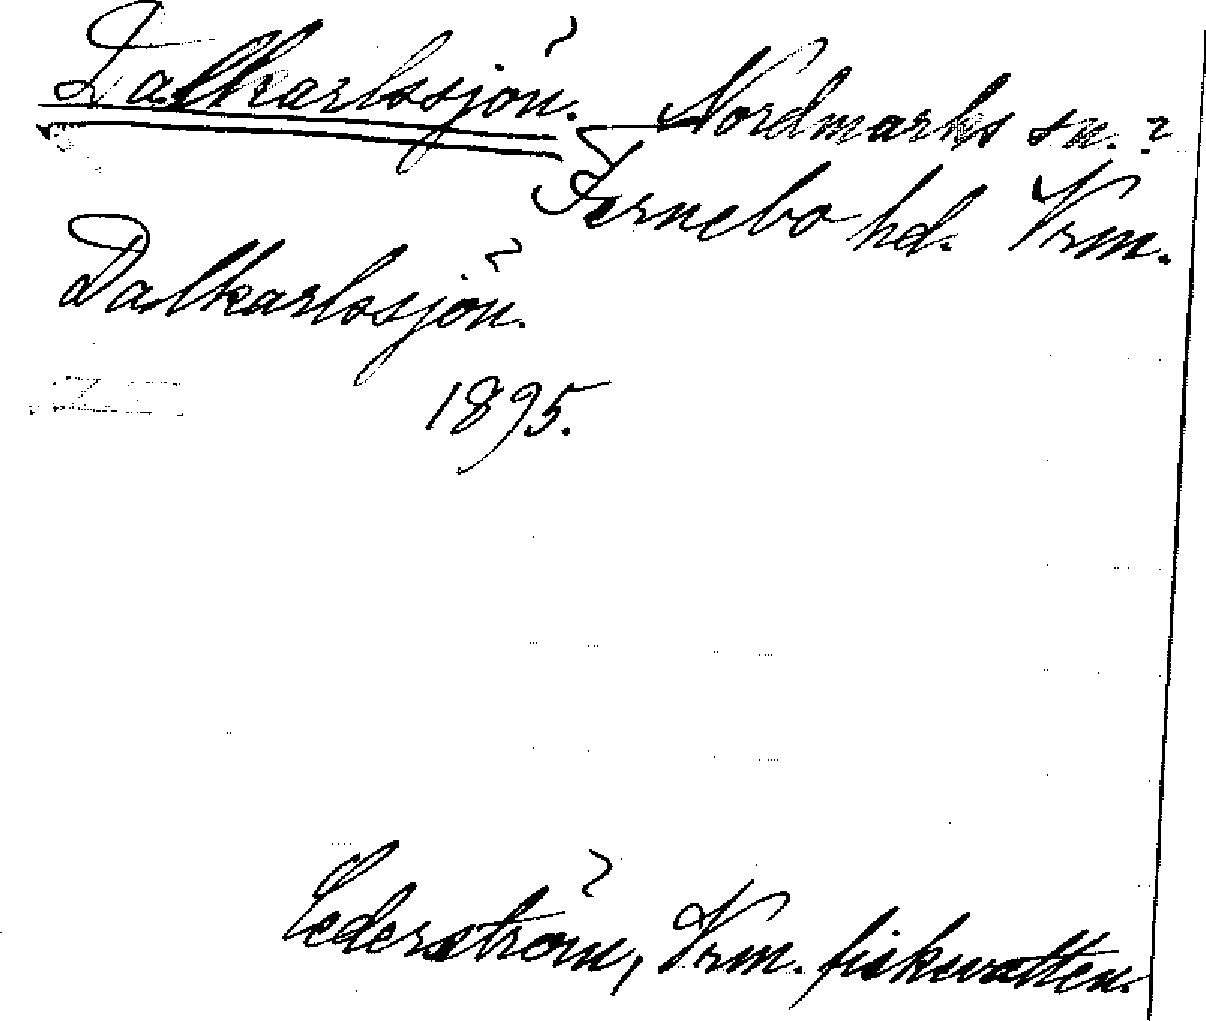 Dalkarlssjön. Nordmarks sn.?
Fernebo hd. Vrm.
Dalkarlssjön.
1895.
Cederström, Vrm. fiskvatten.